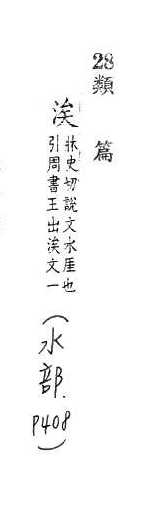 28類篇
涘
牀史切說文水厓也
引周書王出涘文一
(水部.P408)